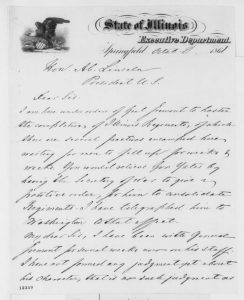 State of Illinois
Executive Department.
Springfield, Octob 1861
Hon. A. Lincoln
President U.S.
Dear Sir
I am here under orders of Genl Fremont to hasten
the completion of Illinois Regiments, of which
there are several fractions encamped here
waiting for men to fill up for weeks &
weeks. You would relieve Gov Yates by
having the Secretary of War to give a
positive order to him to consolidate
Regiments I have telegraphed him to
Washington to that effect
My dear Sir, I have been with General
Fremont several weeks now on his staff.
I have not formed any judgment yet about
his character, that is no such judgment as